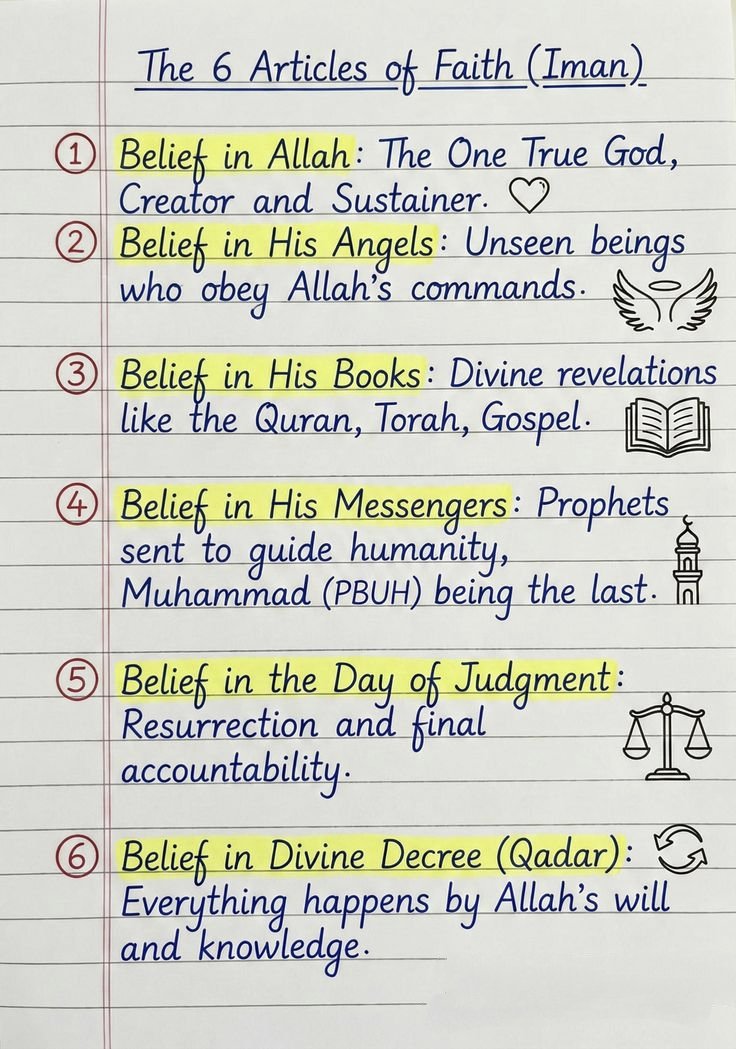 The 6 Articles of Faith (Iman)
1 Belief in Allah: The One True God,
Creator and Sustainer.
2 Belief in His Angels: Unseen beings
who obey Allah's commands.
3 Belief in His Books: Divine revelations
like the Quran, Torah, Gospel.
4 Belief in His Messengers: Prophets
sent to guide humanity,
Muhammad (PBUH) being the last.
5 Belief in the Day of Judgment:
Resurrection and final
accountability.
6 Belief in Divine Decree (Qadar):
Everything happens by Allah's will
and knowledge.